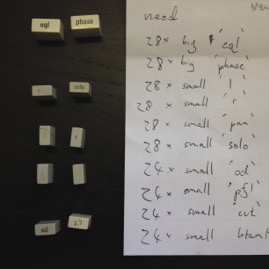 eql
phase
solo
l
r
od
pfl
need
28 × big 'eql'
28 × big 'phase'
28 × small 'l'
28 × small 'r'
28 × small 'pan'
28 × small 'solo'
24 × small 'od'
24 × small 'pfl'
24 × small 'cut'
24 × small